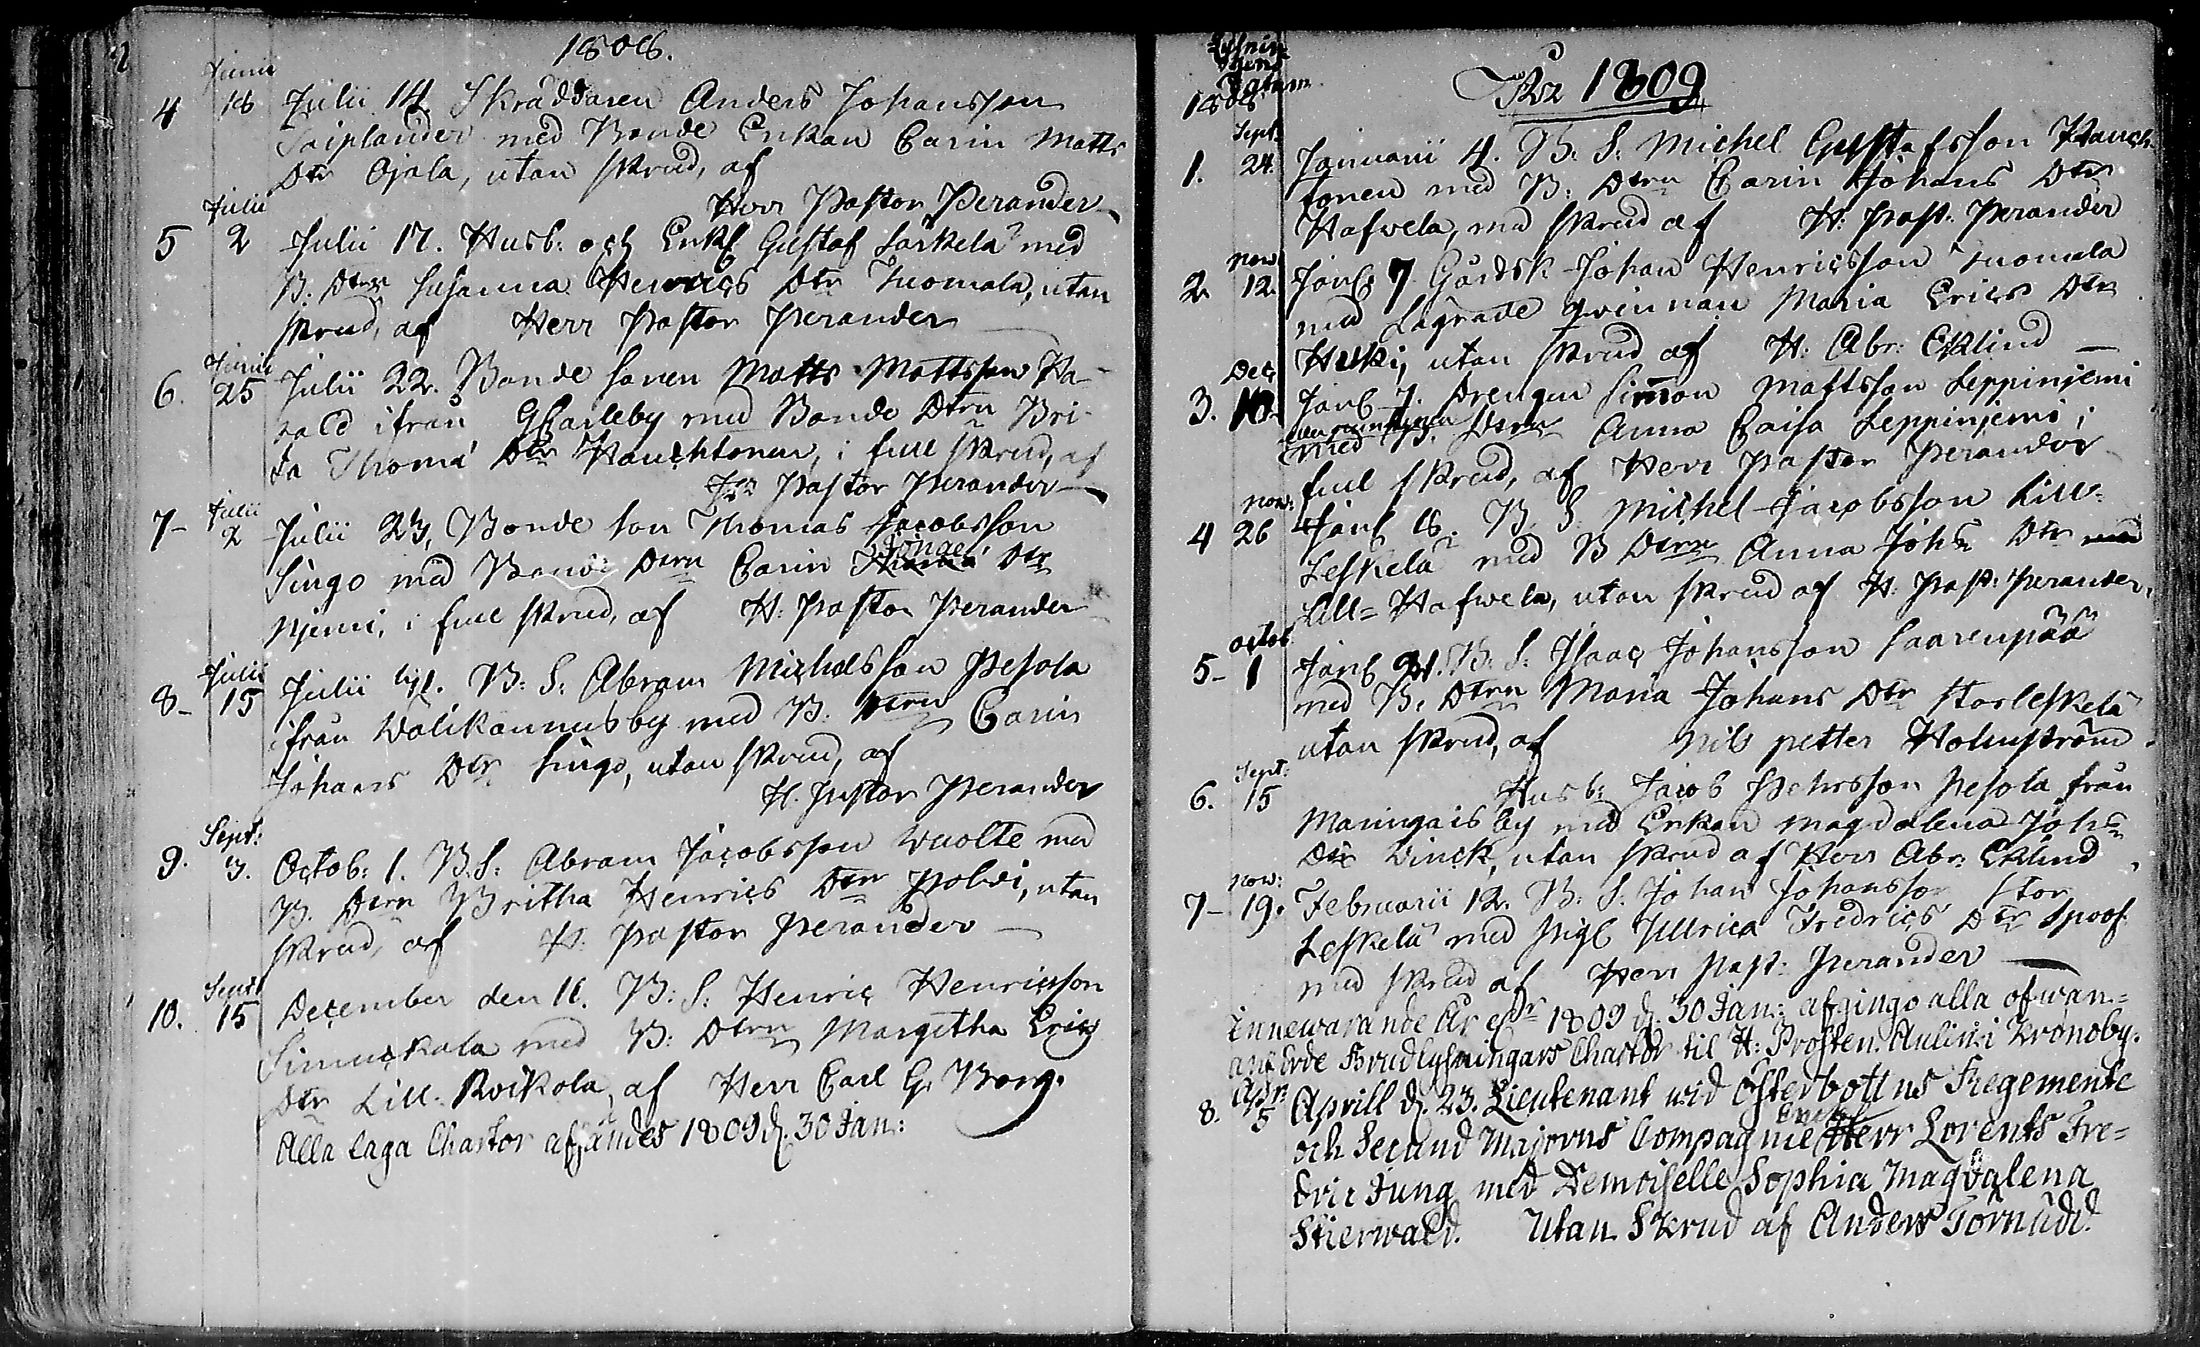 1808.
Junii
4 18 Julii 14 Skräddaren Anders Johansson
Saiplander med Bonde Enkan Carin Matts
Dtr Ojala, utan skrud, af
Herr Pastor Perander
Julii
5 2 Julii 17. Husb: och Enkl Gustaf Särkelä med
B: Dtrn Susanna Henrics Dtr Tuomala, utan
skrud, af Herr Pastor Perander
Junii
6. 25 Julii 22. Bonde sonen Matts Mattsson Ka-
ifrån GCarleby med Bonde Dtrn Bri-
ta Thomæ Dtr Kauchtonen, i full skrud, af
Hr Pastor Perander
Julii
7- 2 Julii 23, Bonde son Thomas Jacobsson
Lingo med Bonde Dtrn Carin Dtr
Njemi, i full skrud, af H: Pastor Perander
Julii
8- 15 Julii 31. B: S: Abram Michelsson Pesola
ifrån Walikannus by med B. Dtrn Carin
Johans Dtr Lingo, utan skrud, af
H. Pastor Perander
Sept:
9. 3. Octob: 1. B.S: Abram Jacobsson Wuolte med
B. Dtrn Britha Henrics Dtr Polvi, utan
skrud, af H. Pastor Perander
Sept:
10. 15 December den 11. B: S: Henric Henricsson
Simuckala med B: Dtrn Margetha Erics
Dtr Lill. Kvikola, af Herr Carl G. Borg.
Alla laga Chartor afsändes 1809 d. 30 Jan:
Lysnin-
gens
Datum
1808
År 1809
Sept:
1. 24. Januarii 4. B. S: Michel Gustafsson Kauch-
tonen med B: Dtrn Carin Johans Dtr
Hafwela, med skrud af H: Past: Perander
Nov
2 12. Janü 7 Gårdsk Johan Henricsson Tuomala
med Lägrade qvinnan Maria Erics Dtr
Huki, utan skrud af H: Abr: Eklind
Dec
3. 10. Janü 7. Drengen Simon Mattsson Leppinjemi
med Dtrn Anna Caisa Leppinjemi, i
full skrud, af Herr Pastor Perander
Nov:
4 26 Janü 8. B. S. Michel Jacobsson Lill-
Leskelä med B Dtrn Anna Johs Dtr med
Lill= Hafwela, utan skrud af H. Past: Perander,
Octob
5- 1 Janü 21. B: S: Isaac Johansson Saarenpää
med B. Dtrn Maria Johans Dtr Storleskelä
utan skrud, af Nils Petter Holmström.
Sept:
6. 15 Husb: Jacob Pehrsson Pesola från
Maringais by med Enkan Magdalena Johs
Dtr Winck, utan skrud af Herr Abr: Eklind
Nov:
7- 19. Februarii 12. B. S. Johan Johansson Stor
Leskelä med Pigl Ullrica Fredrics Dtr Spoof
med skrud af Herr Past: Perander
Innewarande År 1809 d. 30 Jan: afgingo alla ofwan-
anförde Brudlysningars Chartor til H: Prosten Aulin i Kronoby.
Apr:
8. 5 Aprill d. 23. Lieutenant wid Österbottns Regemente
och Secund Majorns Compagnie Herr Lorents Fre-
dric Jung med Demoiselle Sophia Magdalena
Stierwald. Utan Skrud af Anders Törnudd.